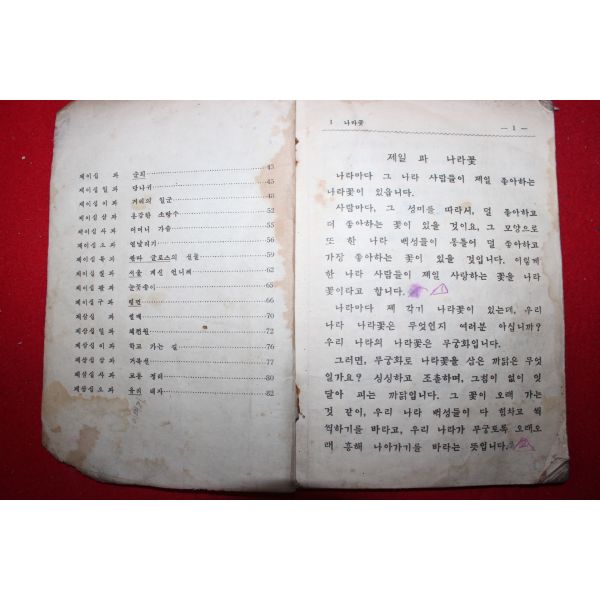 제이십 과 순희 43
제이십 일 과 당나귀 45
제이십 이 과 겨레의 일군 48
제이십 삼 과 용감한 소방수 52
제이십 사 과 어머니 가슴 55
제이십 오 과 연날리기 56
제이십 육 과 싼타 클로스의 선물 59
제이십 칠 과 서울 계신 언니께 62
제이십 팔 과 눈꽃송이 65
제이십 구 과 링컨 66
제삼십 과 썰매 70
제삼십 일 과 72
제삼십 이 과 학교 가는 길 76
제삼십 삼 과 거북선 77
제삼십 사 과 교통 정리 80
제삼십 오 과 유리 태자 82
1 나라꽃
— 1 —
제일 과 나라꽃
나라마다 그 나라 사람들이 제일 좋아하는
나라꽃이 있읍니다.
사람마다, 그 성미를 따라서, 덜 좋아하고
더 좋아하는 꽃이 있을 것이요, 그 모양으로
또 한 나라 백성들이 통틀어 덜 좋아하고
가장 좋아하는 꽃이 있을 것입니다. 이렇게
한 나라 사람들이 제일 사랑하는 꽃을 나라
꽃이라고 합니다.
나라마다 제 각기 나라꽃이 있는데, 우리
나라 나라꽃은 무엇인지 여러분 아십니까?
우리 나라의 나라꽃은 무궁화입니다.
그러면, 무궁화로 나라꽃을 삼은 까닭은 무엇
일가요? 싱싱하고 조촐하며, 그침이 없이 잇
달아 피는 까닭입니다. 그 꽃이 오래 가는
것 같이, 우리 나라 백성들이 다 힘차고 씩
씩하기를 바라고, 우리 나라가 무궁토록 오래오
래 흥해 나아가기를 바라는 뜻입니다.